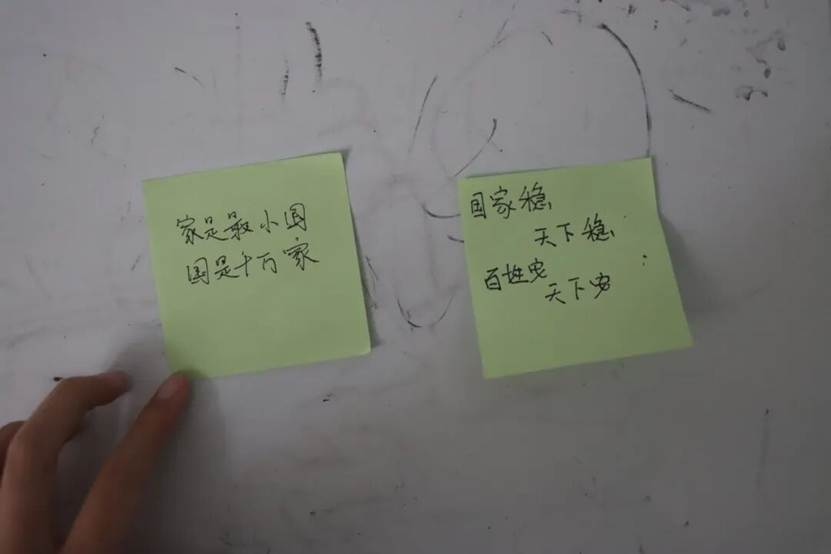 家是最小国
国是十万家
国家稳
天下稳
百姓安
天下安